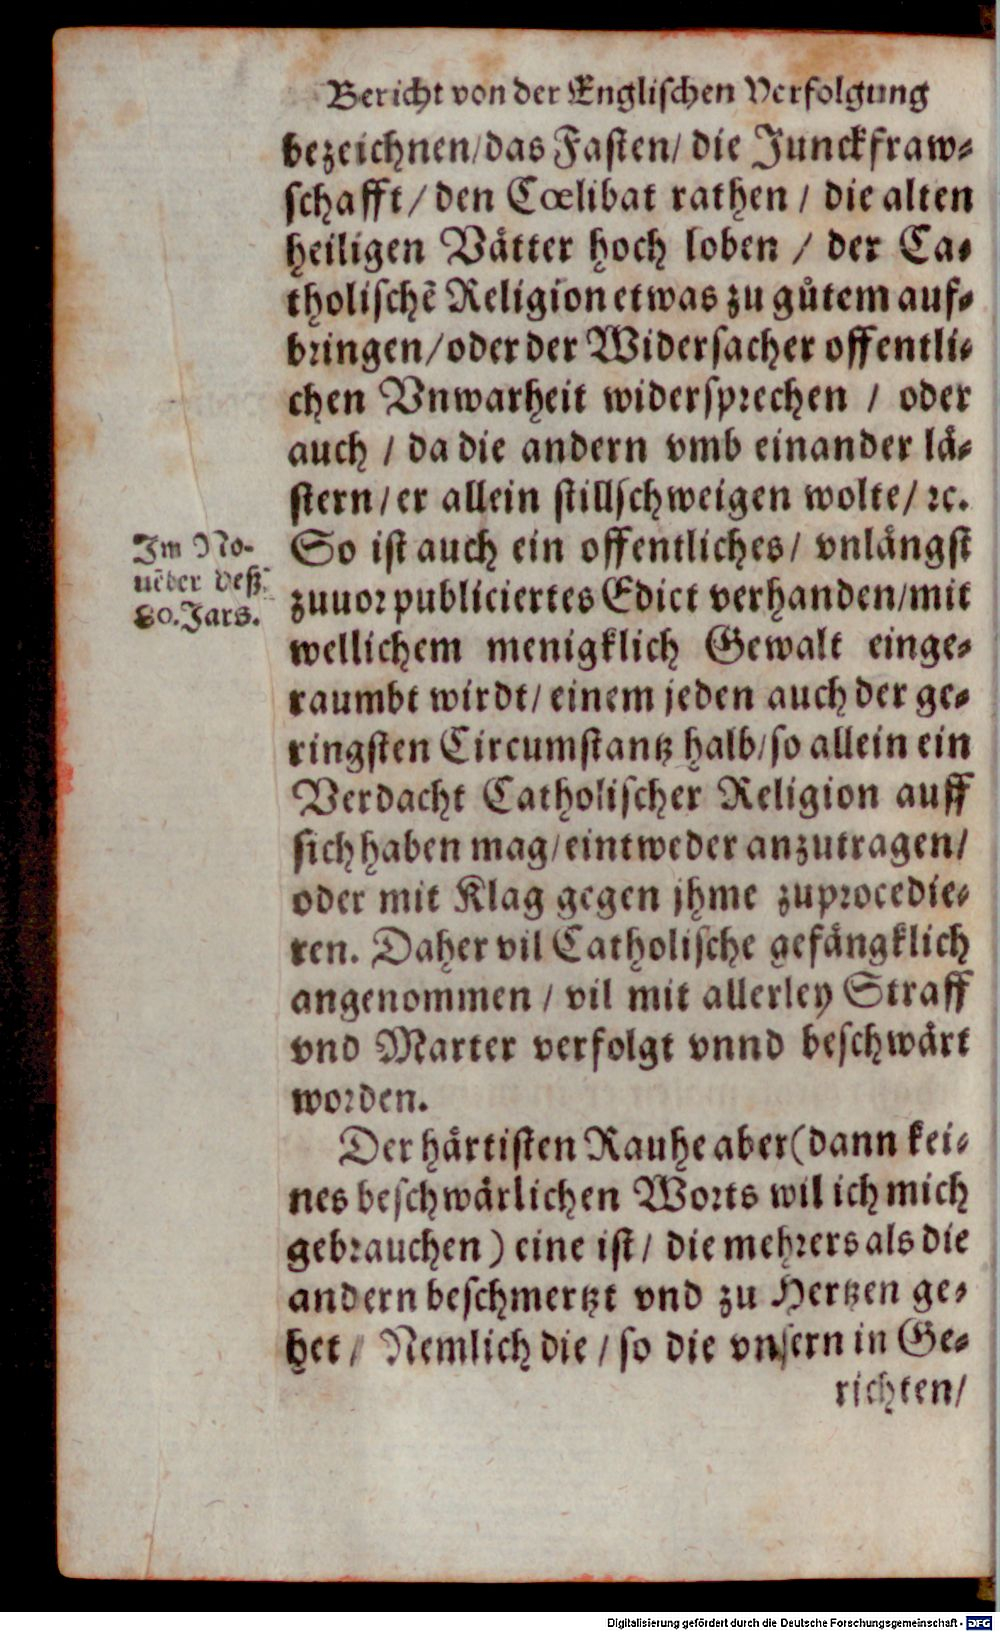 Bericht von der Englischen Verfolgung
bezeichnen/das Fasten/ die Junckfraw⸗
schafft / den Cœlibat rathen / die alten
heiligen Vaͤtter hoch loben / der Ca⸗
tholischē Religion etwas zu guͦtem auf⸗
bringen/oder der Widersacher offentli⸗
chen Vnwarheit widersprechen / oder
auch / da die andern vmb einander laͤ⸗
stern/er allein stillschweigen wolte/ ꝛc.
So ist auch ein offentliches/ vnlaͤngst
zuuor publiciertes Edict verhanden/mit
wellichem menigklich Gewalt einge⸗
raumbt wirdt/ einem jeden auch der ge⸗
ringsten Circumstantz halb/so allein ein
Verdacht Catholischer Religion auff
sich haben mag/eintweder anzutragen/
oder mit Klag gegen jhme zuprocedie⸗
ren. Daher vil Catholische gefaͤngklich
angenommen / vil mit allerley Straff
vnd Marter verfolgt vnnd beschwaͤrt
worden.
Im No⸗
uēber deß
80. Jars.
Der haͤrtisten Rauhe aber (dann kei⸗
nes beschwaͤrlichen Worts wil ich mich
gebrauchen) eine ist/ die mehrers als die
andern beschmertzt vnd zu Hertzen ge⸗
het / Nemlich die / so die vnsern in Ge⸗
richten/
Digitalisierung gefördert durch die Deutsche Forschungsgemeinschaft - DFG